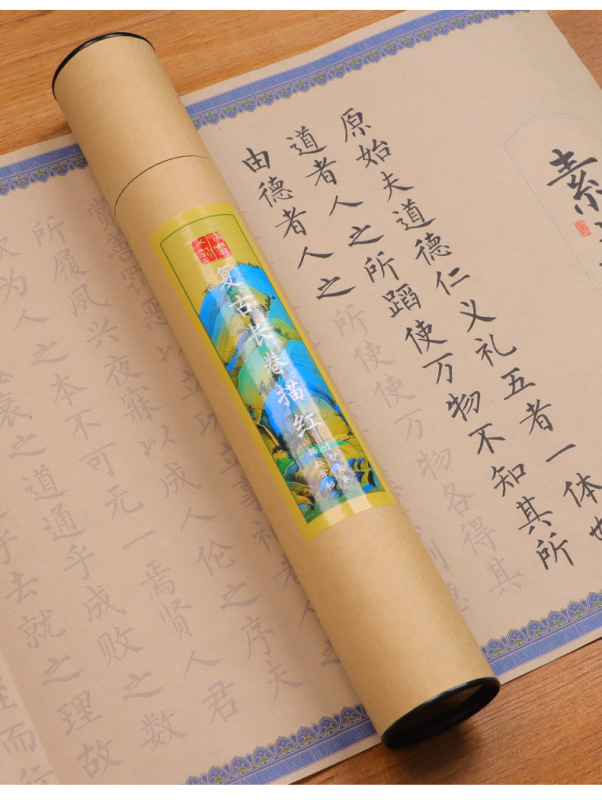 素
原始夫道德仁义礼五者一体也
道者人之所蹈使万物不知其所
由德者人之所使使万物各得其
赏善罚恶以立功立事礼者人之
所履夙兴夜寐以成人伦之序夫
为人之本不可无一焉贤人君
衰之道通乎成败之数
乎去就之理故
而行
复古长卷描红